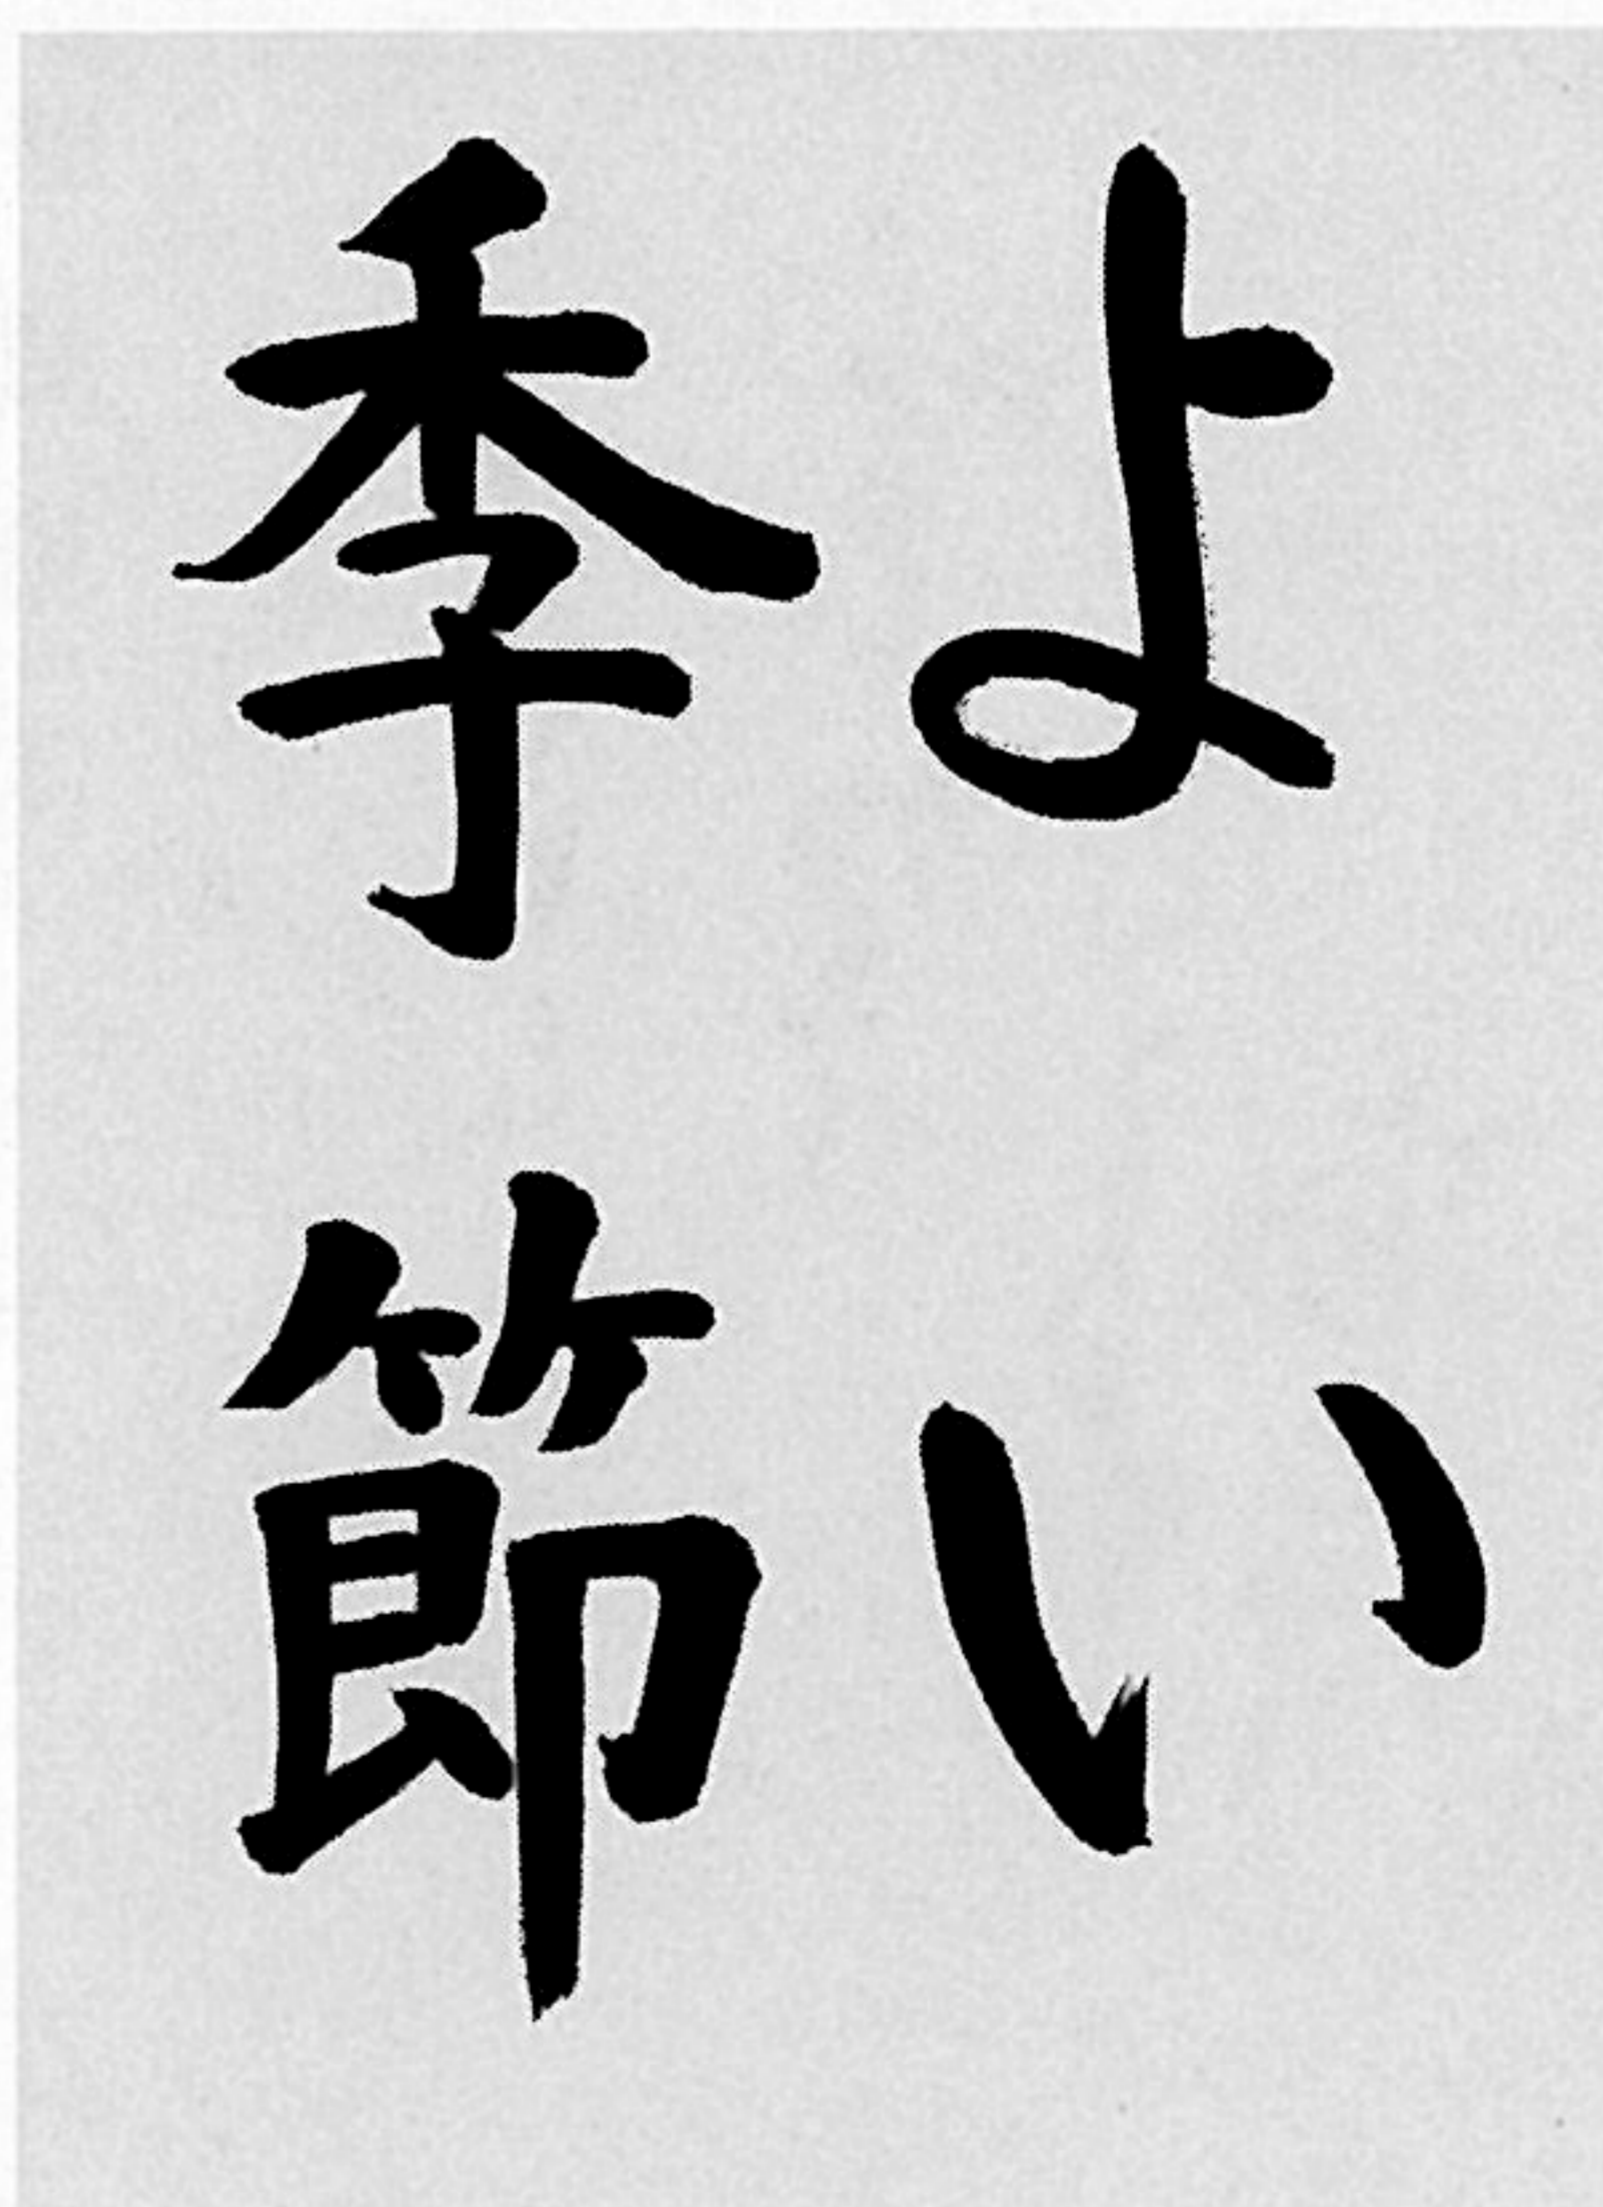 よい
季節